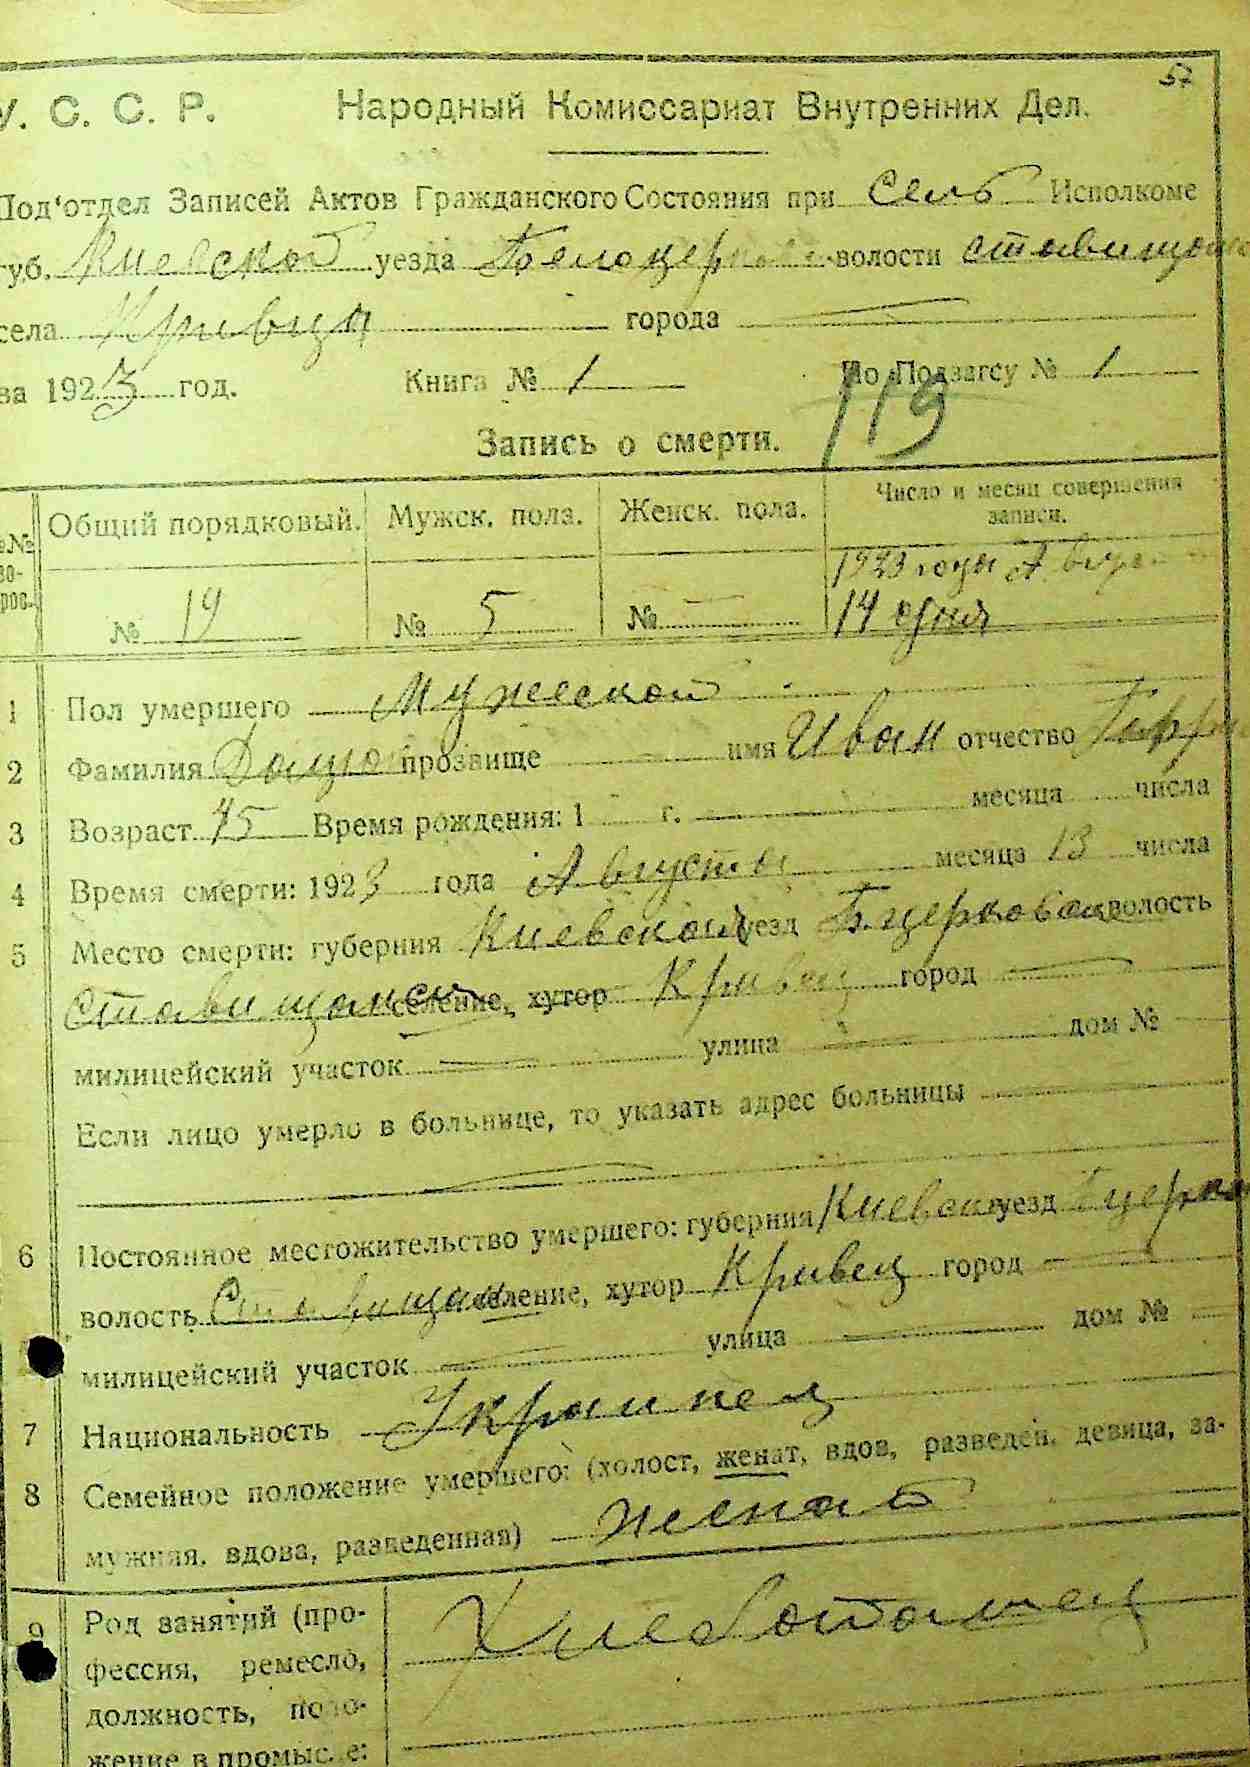 57
У. С. С. Р. Народный Комиссариат Внутренних Дел.
Под'отдел Записей Актов Гражданского Состояния при Сельб Исполкоме
губ. Киевской уезда Белоцеркови волости ставищан
села Кривца города
за 1923 год. Книга № 1 По Подзагсу № 1
119
Запись о смерти.
Общий порядковый. Мужск. пола. Женск. пола. Число и месяц совершения
записи.
1923 года Август
№ 19 № 5 № 14 дня
1 Пол умершего Мужеской
2 Фамилия прозвище имя Иван отчество
3 Возраст 45 Время рождения: 1 г. месяца числа
4 Время смерти: 1923 года Августа месяца 13 числа
5 Место смерти: губерния Киевской уезд Б.церковской волость
Ставищанск селение, хутор Кривец город
милицейский участок улица дом №
Если лицо умерло в больнице, то указать адрес больницы
6 Постоянное местожительство умершего: губерния Киевск уезд Бцерков
волость Ставищан селение, хутор Кривец город
милицейский участок улица дом №
7 Национальность Украинец
8 Семейное положение умершего: (холост, женат, вдов, разведен, девица, за-
мужняя, вдова, разведенная) женат
9 Род занятий (про- Хлебопашец
фессия, ремесло,
должность, поло-
жение в промысле: